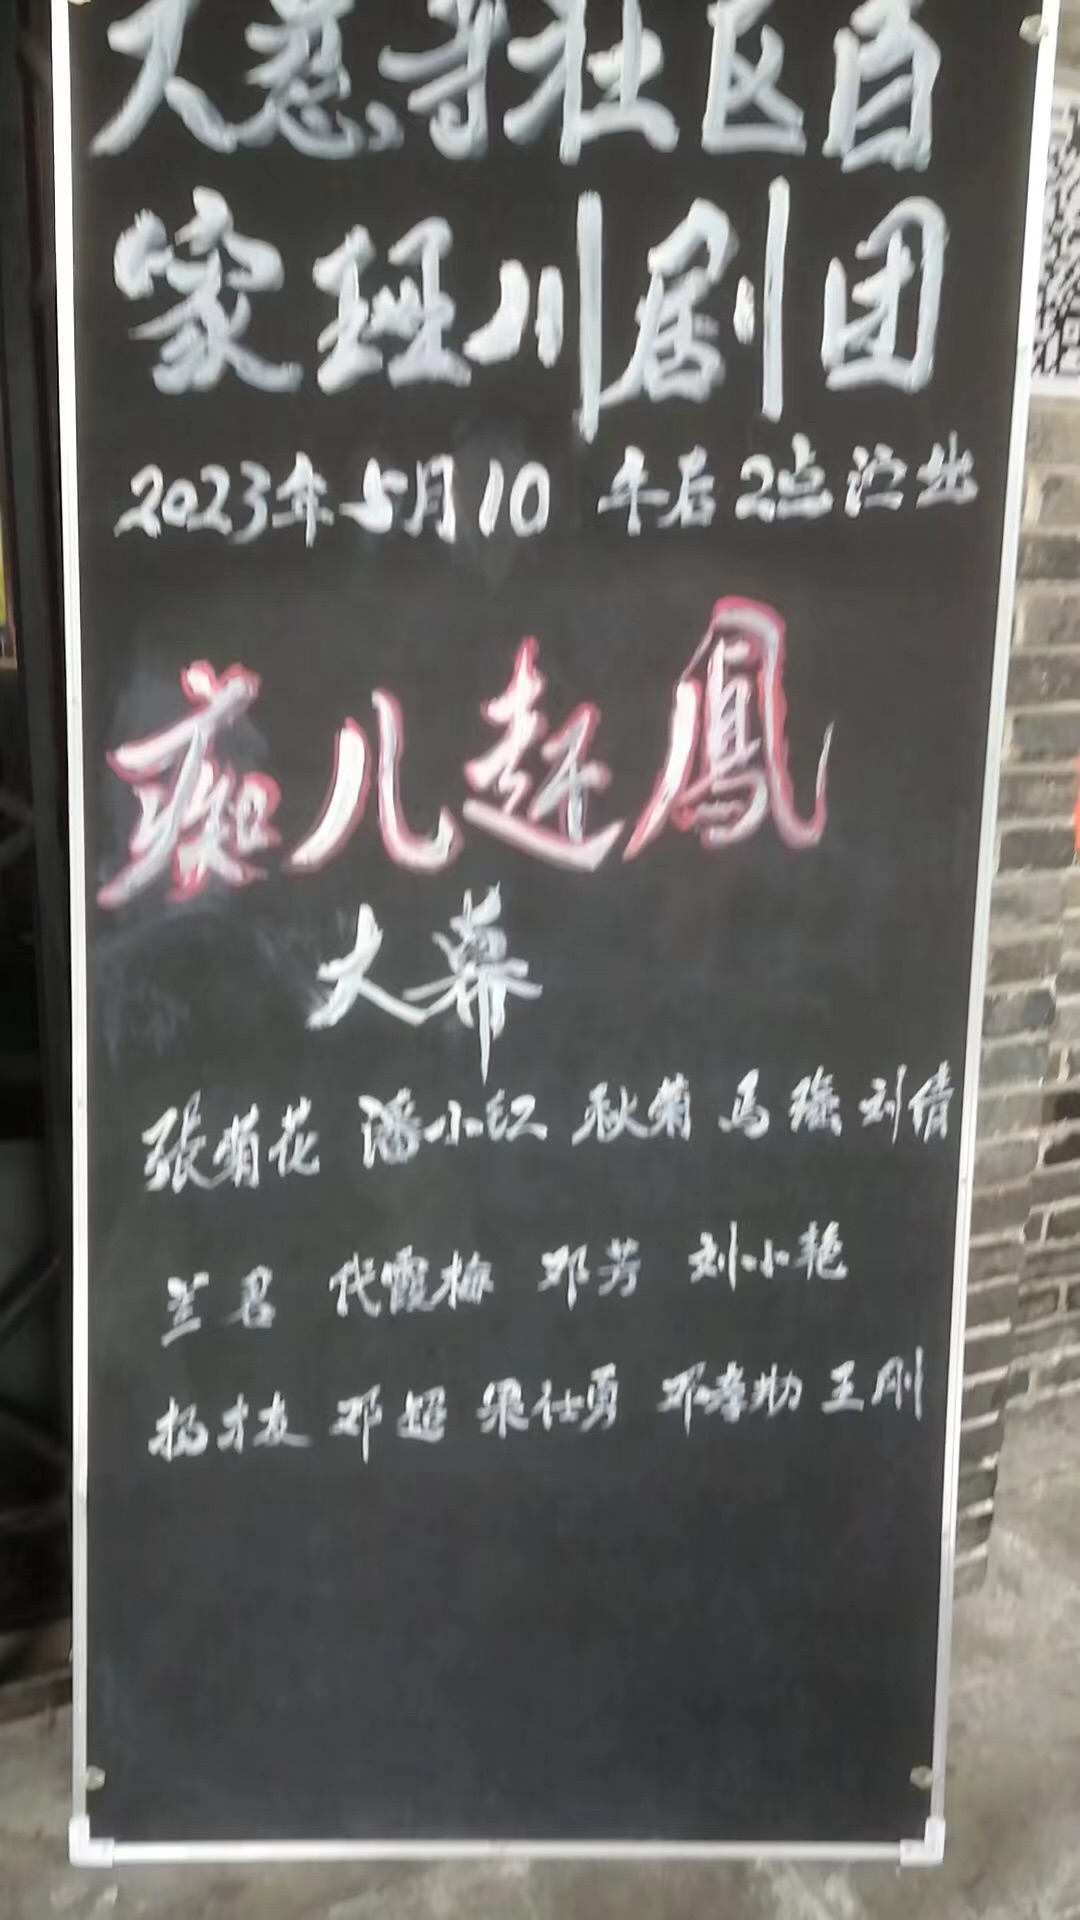 大慈寺社区百
家班川剧团
2023年5月10 午后2点演出
痴儿赶鳳
大幕
張菊花 潘小红 秋菊 马瑶 刘倩
兰君 代霞梅 邓芳 刘小艳
杨才友 邓超 梁仕勇 邓孝勋 王刚